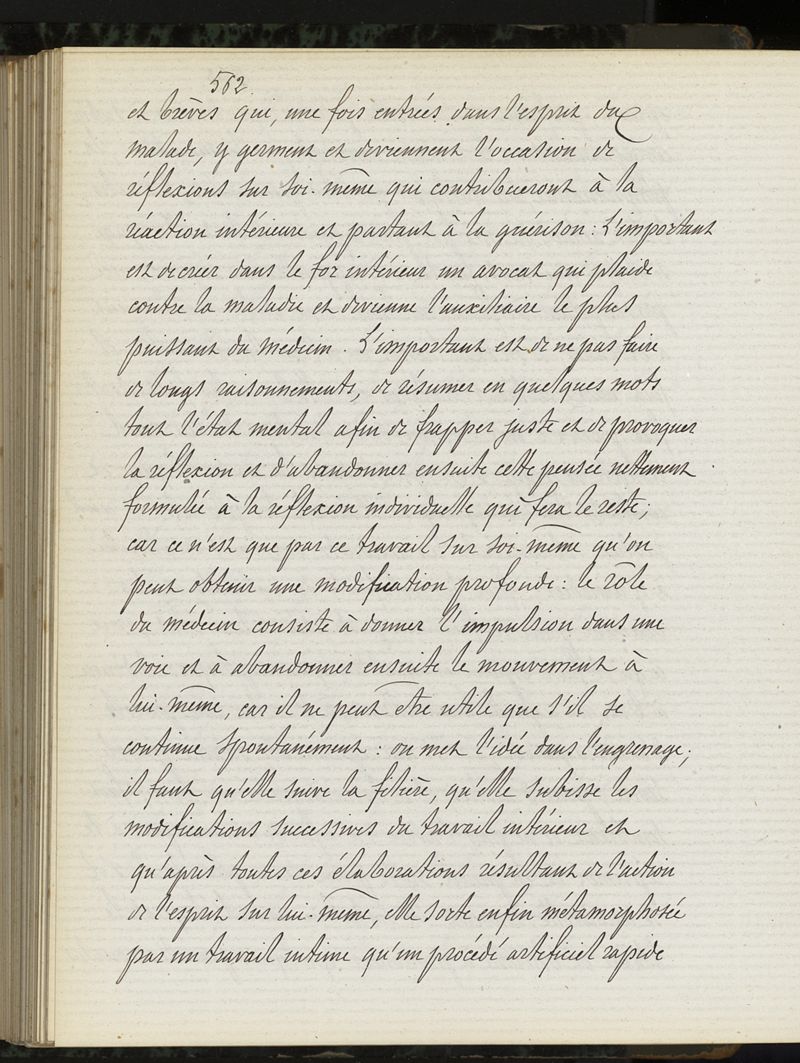 562
et brèves qui, une fois entrées dans l'esprit du
malade, y germent et deviennent l'occasion de
réflexions sur soi-même qui contribueront à la
réaction intérieure et partant à la guérison : L'important
est de créer dans le for intérieur un avocat qui plaide
contre la maladie et devienne l'auxiliaire le plus
puissant du médecin. L'important est de ne pas faire
de longs raisonnements, de résumer en quelques mots
tout l'état mental afin de frapper juste et de provoquer
la réflexion et d'abandonner ensuite cette pensée nettement
formulée à la réflexion individuelle qui fera le reste ;
car ce n'est que par ce travail sur soi-même qu'on
peut obtenir une modification profonde : le rôle
du médecin consiste à donner l'impulsion dans une
voie et à abandonner ensuite le mouvement à
lui-même, car il ne peut être utile que s'il se
continue spontanément : on met l'idée dans l'engrenage ;
il faut qu'elle suive la filière, qu'elle subisse les
modifications successives du travail intérieur et
qu'après toutes ces élaborations résultant de l'action
de l'esprit sur lui-même, elle sorte enfin métamorphosée
par un travail intime qu'un procédé artificiel rapide